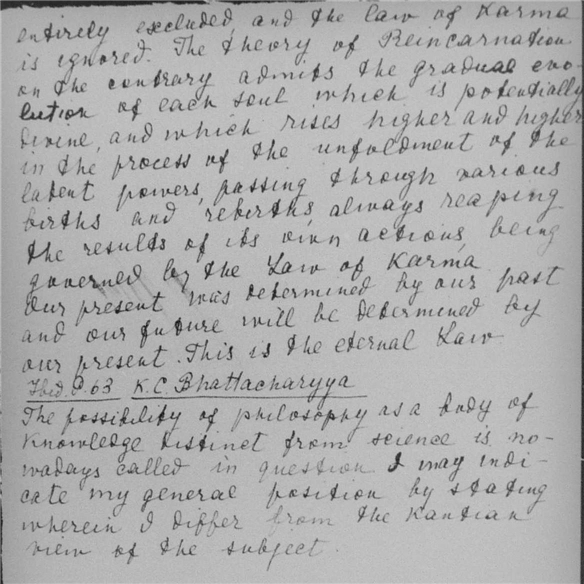 entirely excluded, and the law of Karma
is ignored. The theory of Reincarnation
on the contrary admits the gradual evo-
lution of each soul which is potentially
divine, and which rises higher and higher
in the process of the unfoldment of the
latent powers, passing through various
births and rebirths, always reaping
the results of its own actions, being
governed by the Law of Karma.
Our present was determined by our past
and our future will be determined by
our present. This is the eternal Law.
Ibid. P. 63 K.C. Bhattacharyya
The possibility of philosophy as a body of
knowledge distinct from science is no-
wadays called in question. I may indi-
cate my general position by stating
wherein I differ from the Kantian
view of the subject.